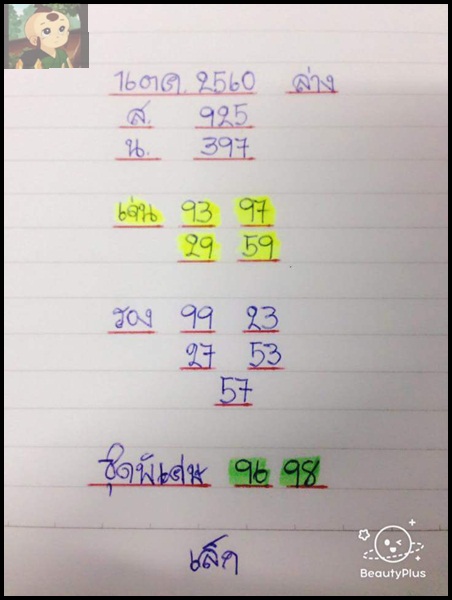 1 ต.ค. 2560 ล่าง
ส. 925
น. 397
เด่น 93 97
29 59
รอง 99 23
27 53
57
ชุดพิเศษ 96 98
เล็ก
BeautyPlus